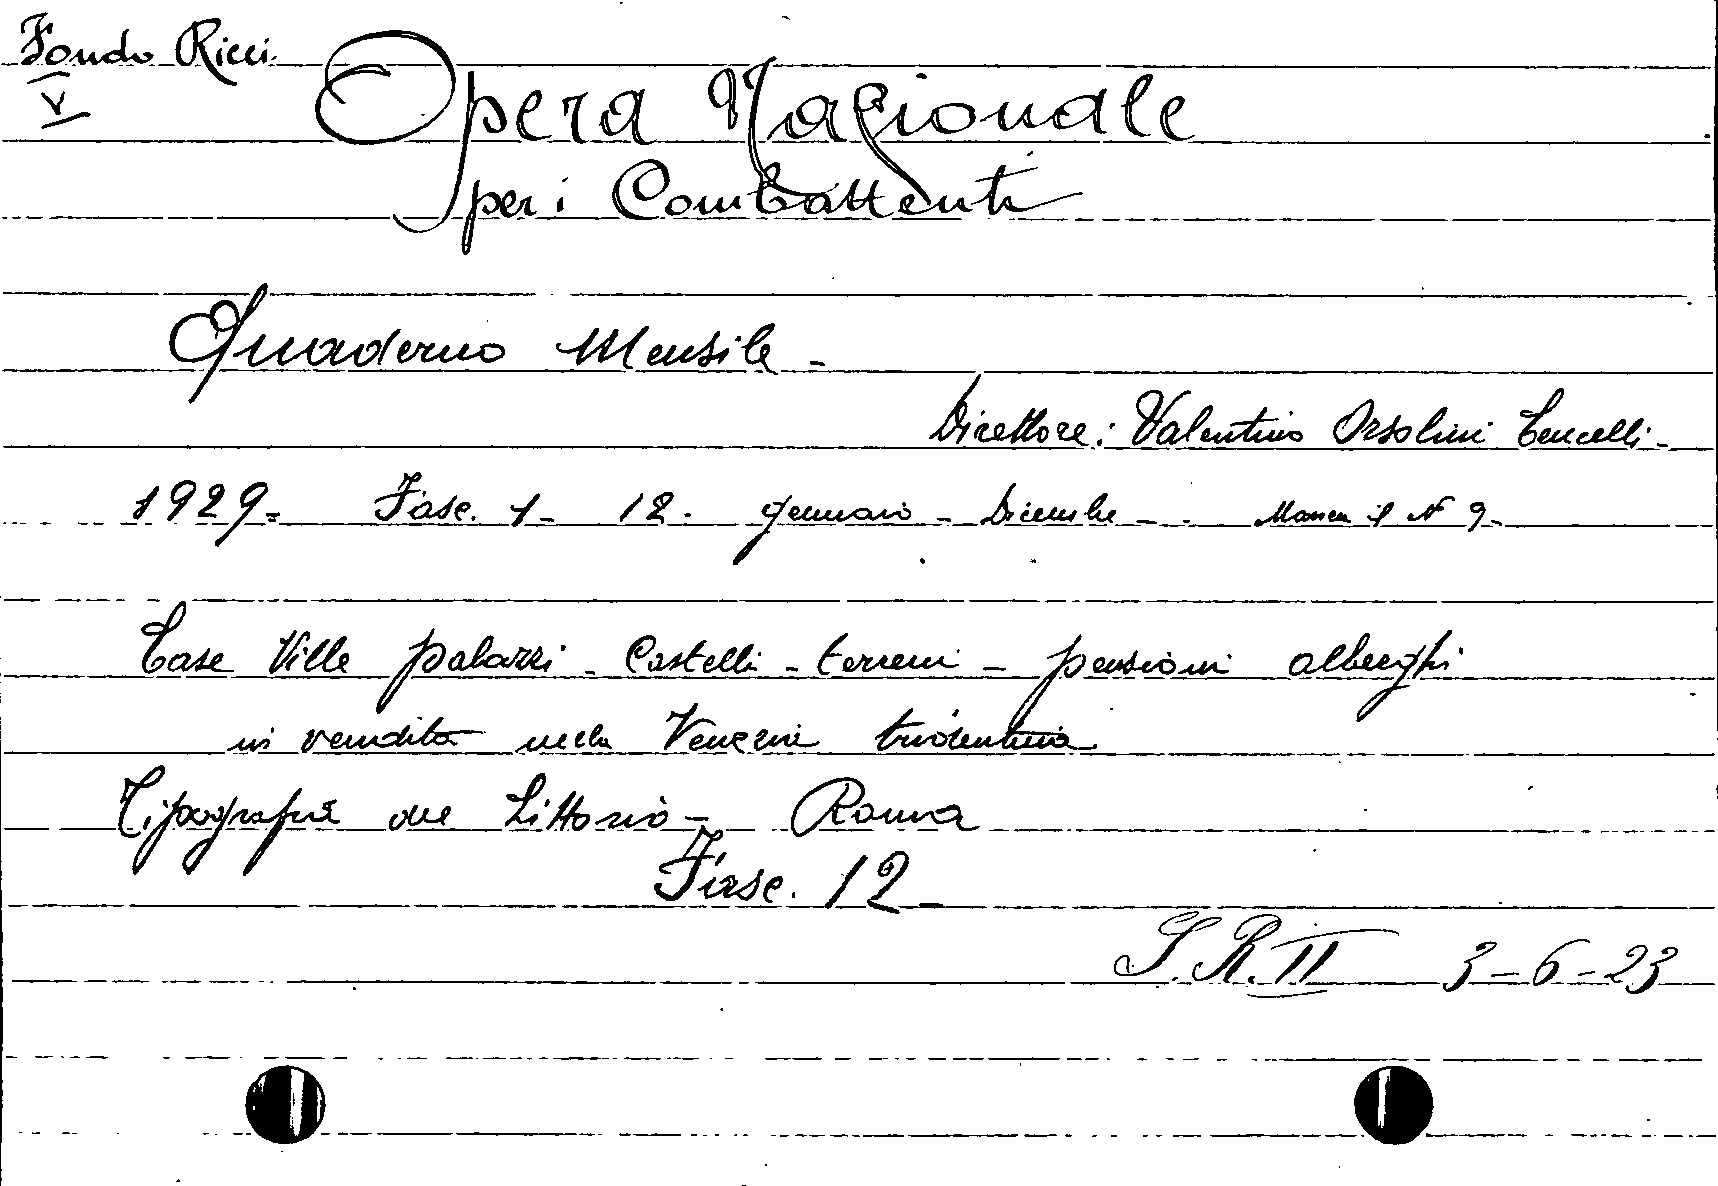 Fondo Ricci
V
Opera Nazionale
per i Combattenti
Quaderno Mensile -
Direttore: Valentino Orsolini Cencelli -
1929 - Fasc. 1 - 12 - gennaio - Dicembre - Manca il N 9 -
Case Ville palazzi - Castelli - terreni - pensioni alberghi
in vendita nella Venezia tridentina
Tipografia del Littorio - Roma
Fasc. 12 -
S. R. II 3-6-23